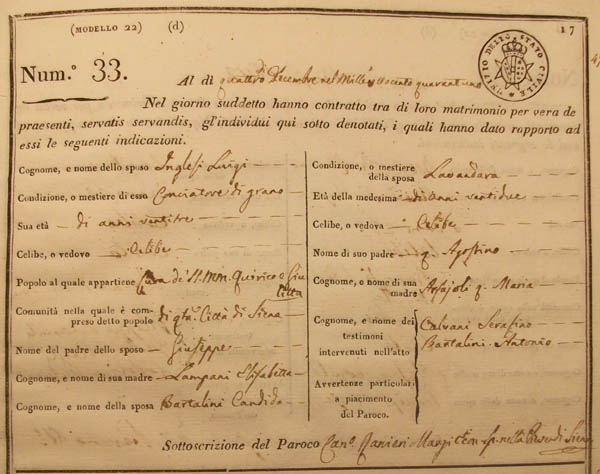 (MODELLO 22) (d) 17
Num.° 33. Al dì quattro Decembre nel Mille ottocento quarantuno
Nel giorno suddetto hanno contratto tra di loro matrimonio per vera de
praesenti, servatis servandis, gl'individui quì sotto denotati, i quali hanno dato rapporto ad
essi le seguenti indicazioni.
UFIZIO DELLO STATO CIVILE
Cognome, e nome dello sposo Inglesi Luigi
Condizione, o mestiere di esso Conciatore di grano
Sua età di anni ventitre
Celibe, o vedovo Celibe
Popolo al quale appartiene Cura de' SS. MM. Quirico e Giu
litta
Comunità nella quale è com-
preso detto popolo di qta. Città di Siena
Nome del padre dello sposo Giuseppe
Cognome, e nome di sua madre Lampani Elisabetta
Cognome, e nome della sposa Bartalini Candida
Condizione, o mestiere
della sposa Lavandara
Età della medesima di anni ventidue
Celibe, o vedova Celibe
Nome di suo padre q. Agostino
Cognome, e nome di sua
madre q. Maria
Cognome, e nome dei
testimoni
intervenuti nell'atto
Calvani Serafino
Bartalini Antonio
Avvertenze particolari
a piacimento
del Parroco.
Sottoscrizione del Paroco Can.° Ranieri